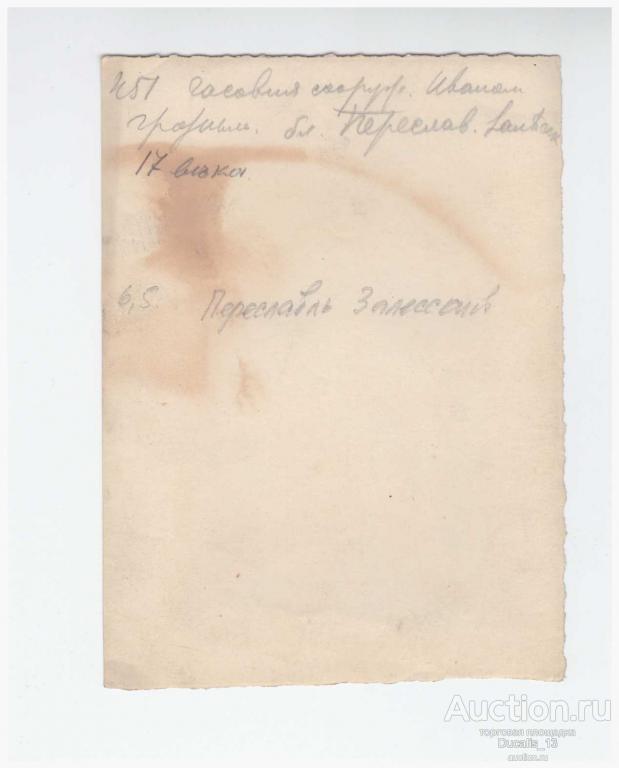 №51 часовня сооруж. Иваном
Грозным. бл. Переслав.
17 века
6,5 Переславль Залесский
Auction.ru
торговая площадка
Ducalis_13
auction.ru